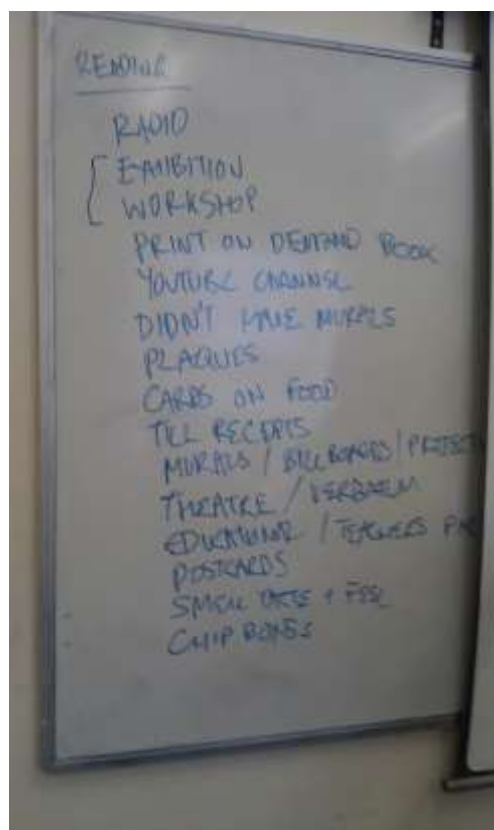 READING
RADIO
EXHIBITION
WORKSHOP
PRINT ON DEMAND BOOK
YOUTUBE CHANNEL
DIDN'T HAVE MURALS
PLAQUES
CARDS ON FOOD
TILL RECEIPTS
MURALS / BILLBOARDS / PROJECT
THEATRE / VERBATIM
EDUCATIONAL / TEACHERS PA
POSTCARDS
SMELL TASTE + FEEL
CHIP BOXES